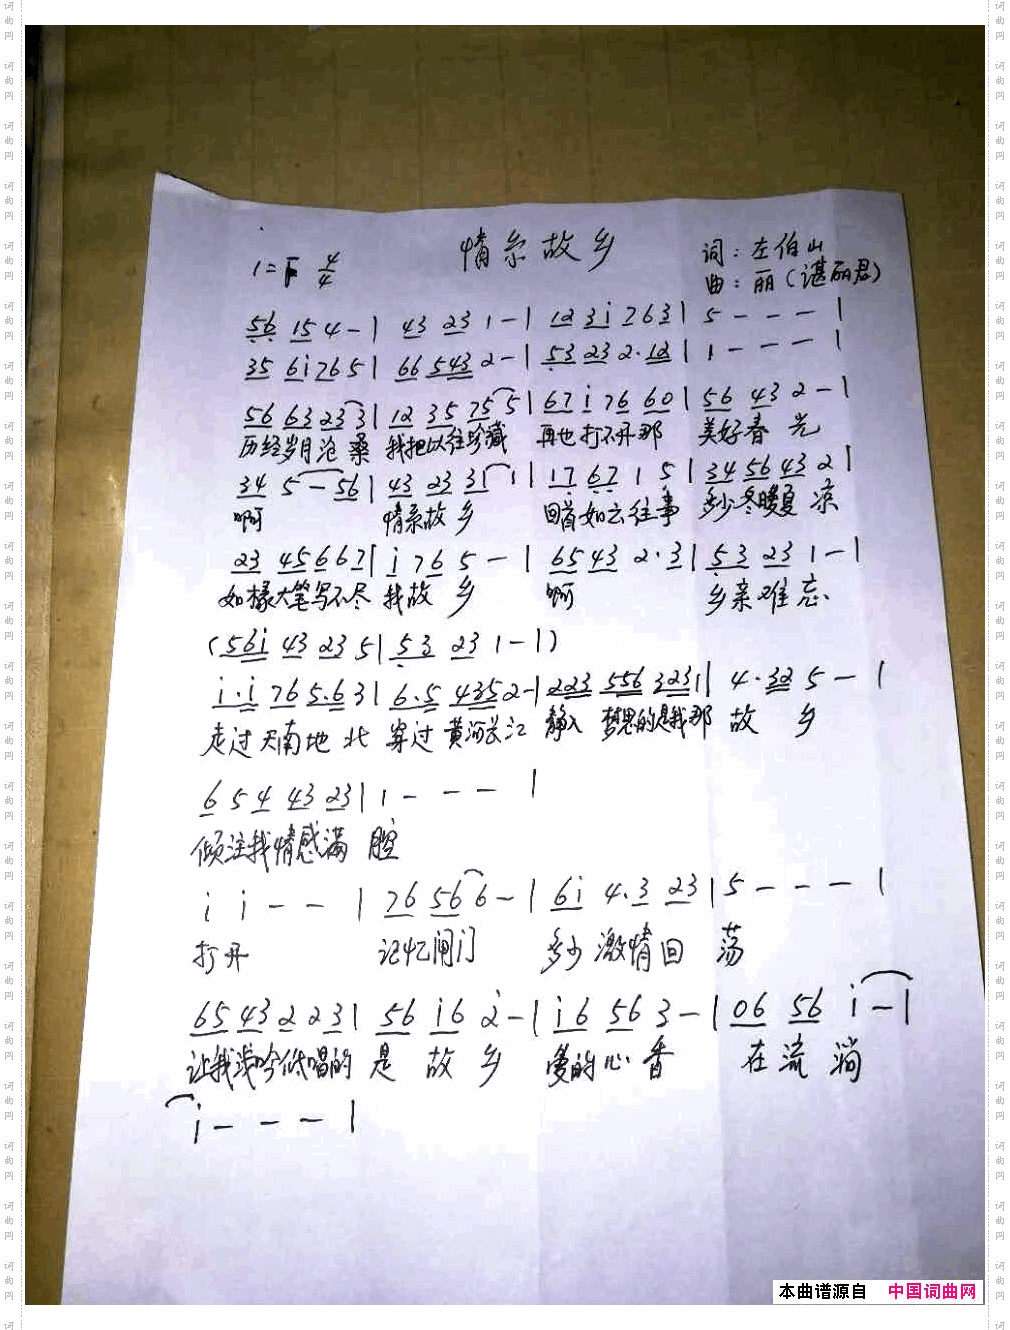 情系故乡
1=F 4/4
词：左伯山
曲：丽（谌丽君）
56 15 4 - | 43 23 1 - | 12 3i 763 | 5 - - - |
35 6i765 | 66 543 2 - | 53 232·12 | 1 - - - |
56 63 23 3 | 12 35 75 5 | 67 i 76 60 | 56 43 2 - |
历经岁月沧桑 我把以往珍藏 再也打不开那 美好春光
34 5 - 56 | 43 23 31 1 | 17 67 1 5 | 34 56 43 2 |
啊 情系故乡 回首如云往事 多少冬暖夏凉
23 45 66 7 | i 76 5 - | 65 43 2·3 | 53 23 1 - |
如椽大笔写不尽 我故乡 啊 乡亲难忘
(56i 43 23 5 | 53 23 1 - |)
i·i 76 5·63 | 6·5 4352 - | 223 556 3231 | 4·32 5 - |
走过天南地北 穿过黄河长江 静入梦思的是我那故乡
654 43 23 | 1 - - - |
倾注我情感满腔
i i - - | 76 56 6 - | 6i 4·3 23 | 5 - - - |
打开 记忆闸门 多少激情回荡
65 43 2 23 | 56 i6 2 - | i6 56 3 - | 06 56 i - |
让我浅吟低唱的是故乡 的心香 在流淌
i - - - |
本曲谱源自 中国词曲网
词曲网